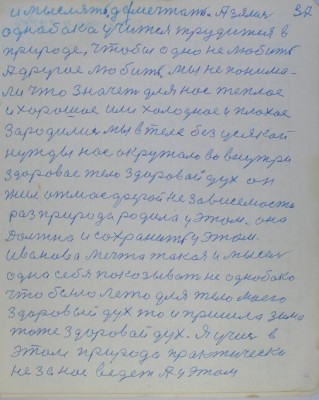 и мыслять, до мечтать. А зямля 37
однабака учится трудится в
природе, чтобы одно не любить
А другое любить. мы не понима-
ли что значет для нас теплое
и хорошое или холодное и плохое
Зародились мы в теле без усякой
нужды нас окружало во внутри
здоровае тело здоровай дух он
жил от
раз природа родила у этом. она
должна и сохранить у этом.
Иванова мечта такая и мысель
одна себя показывать не однобако
что было лето для тело моего
здоровый дух то и пришла зима
тоже здоровай дух. Я учус в
этом природа практически
не за нос ведет А у этом